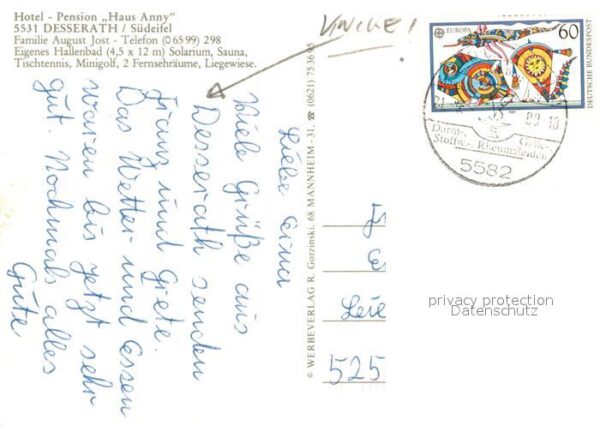 Hotel - Pension „Haus Anny"
5531 DESSERATH / Südeifel
Familie August Jost - Telefon (0 65 99) 298
Eigenes Hallenbad (4,5 x 12 m) Solarium, Sauna,
Tischtennis, Minigolf, 2 Fernsehräume, Liegewiese.
EUROPA
60
DEUTSCHE BUNDESPOST
89.18
Darm-, Galle-,
Stoffw.-, Rheumaleiden
5582
Liebe Erna
Viele Grüße aus
Desserath senden
Franz und Grete.
Das Wetter und Essen
waren bis jetzt sehr
gut. Nochmals alles
Gute
© WERBEVERLAG R. Gorzinski, 68 MANNHEIM - 31, ☎ (0621) 753695
525
privacy protection
Datenschutz